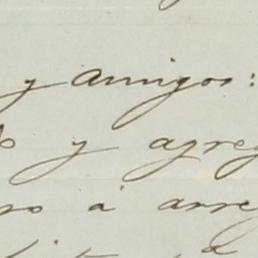 y amigos:
y agre
so á arre